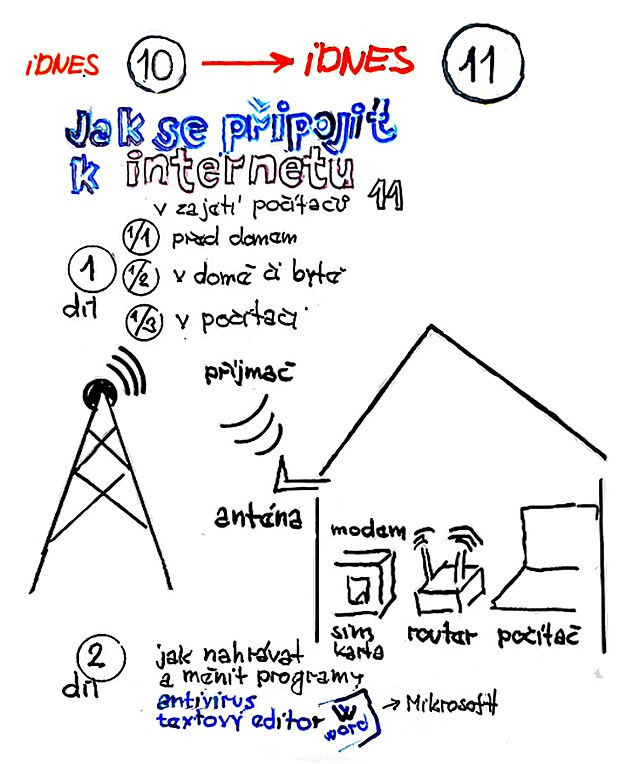 iDNES 10 → iDNES 11
Jak se připojit
k internetu
v zajetí počítačů 11
1/1 před domem
1 díl 1/2 v domě či bytě
1/3 v počítači
přijmač
anténa
modem
sim karta
router
počítač
2 díl
jak nahrávat
a měnit programy
antivirus
textový editor W word → Mikrosoft